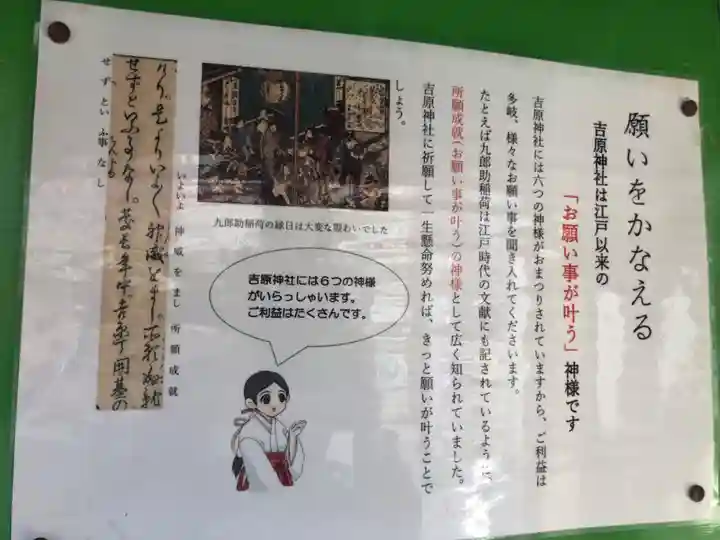 願いをかなえる
吉原神社は江戸以来の
「お願い事が叶う」神様です
吉原神社には六つの神様がおまつりされていますから、ご利益は
多岐。様々なお願い事を聞き入れてくださいます。
たとえば九郎助稲荷は江戸時代の文献にも記されているように、
所願成就(お願い事が叶う)の神様として広く知られていました。
吉原神社に祈願して一生懸命努めれば、きっと願いが叶うことで
しょう。
九郎助稲荷の縁日は大変な賑わいでした
吉原神社には6つの神様
がいらっしゃいます。
ご利益はたくさんです。
いよいよ 神威をまし 所願成就
せずとい ふ事なし